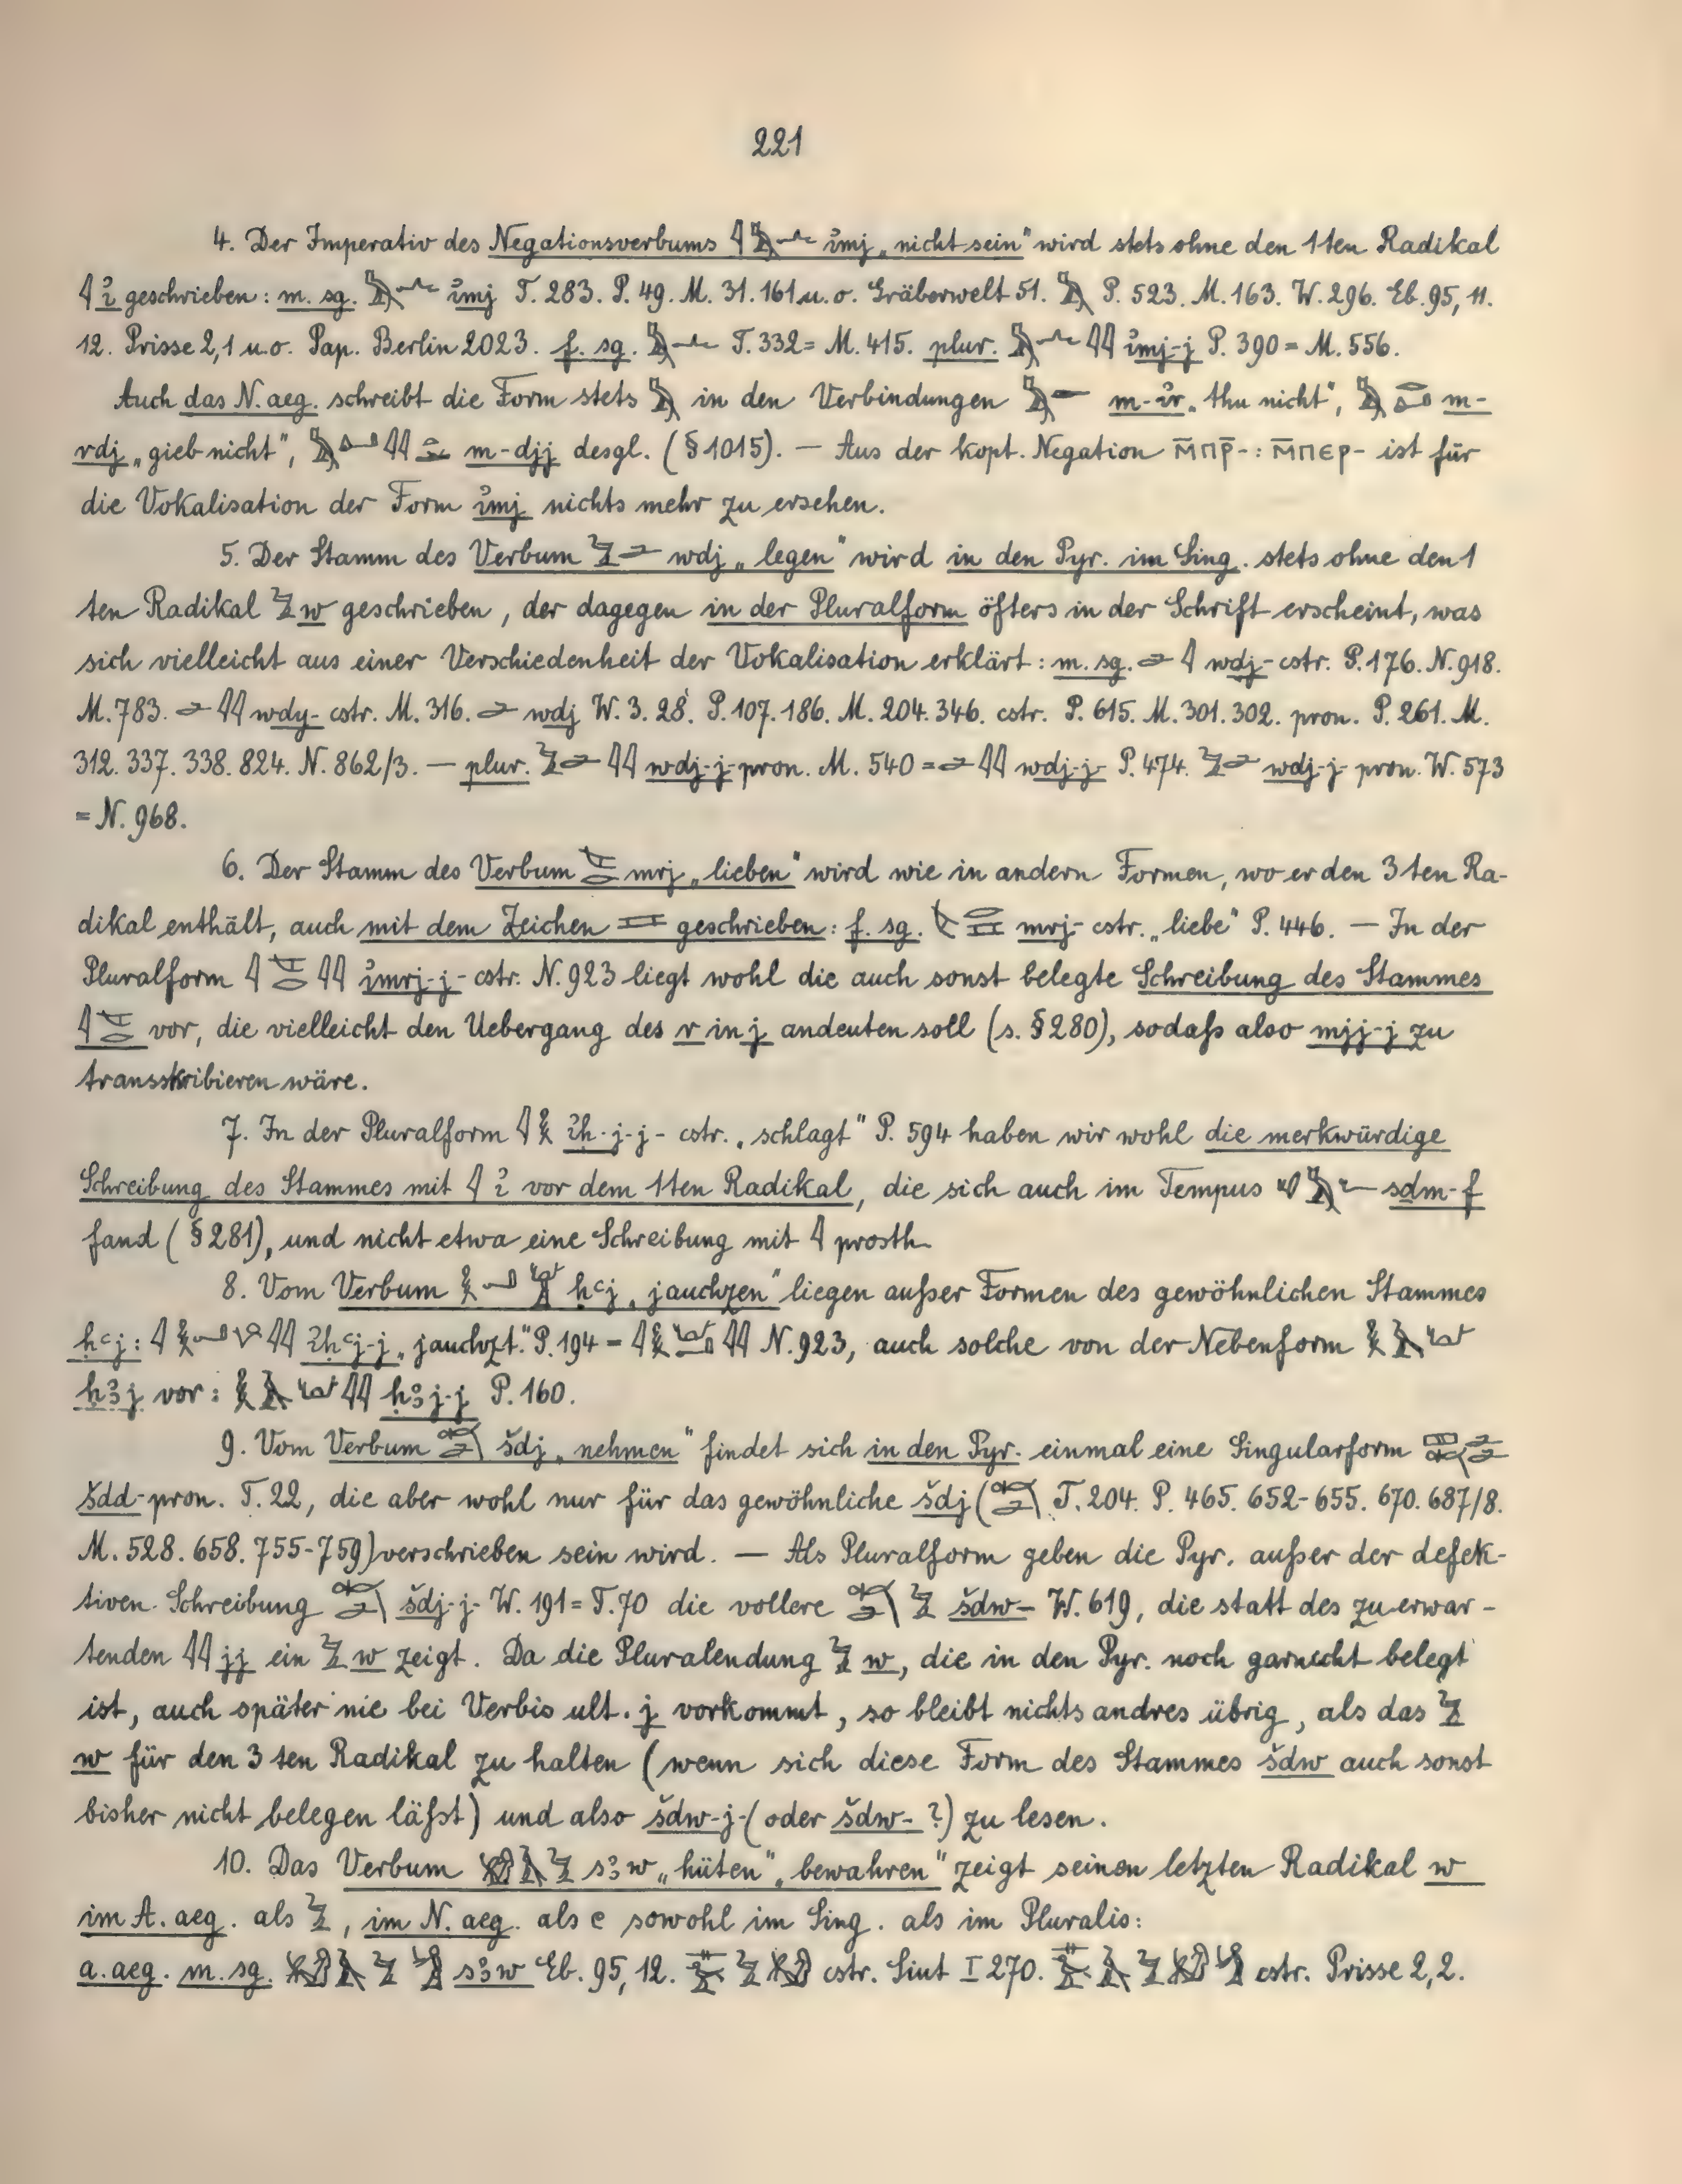 221
4. Der Imperativ des Negationsverbums 𓇋𓅓𓂜 ἰmj „nicht sein" wird stets ohne den 1ten Radikal
𓇋 ἰ geschrieben: m. sg. 𓅓𓂜 ἰmj T. 283. P. 49. M. 31. 161 u. o. Gräberwelt 51. 𓅓 P. 523. M. 163. W. 296. Eb. 95, 11.
12. Prisse 2,1 u. o. Pap. Berlin 2023. f. sg. 𓅓𓂜 T. 332 = M. 415. plur. 𓅓𓂜𓇋𓇋 ἰmj-j P. 390 = M. 556.
Auch das N. aeg. schreibt die Form stets 𓅓 in den Verbindungen 𓅓𓁹 m-ἰr „thu nicht", 𓅓 m-
rdj „gieb nicht", 𓅓𓂞𓇋𓇋 m-djj desgl. (§ 1015). — Aus der kopt. Negation ⲙ̄ⲡⲣ̄- : ⲙ̄ⲡⲉⲣ- ist für
die Vokalisation der Form ἰmj nichts mehr zu ersehen.
5. Der Stamm des Verbum 𓅱𓂧 wdj „legen" wird in den Pyr. im Sing. stets ohne den 1
ten Radikal 𓅱 w geschrieben, der dagegen in der Pluralform öfters in der Schrift erscheint, was
sich vielleicht aus einer Verschiedenheit der Vokalisation erklärt: m. sg. 𓂧𓇋 wdj- cstr. P. 176. N. 918.
M. 783. 𓂧𓇋𓇋 wdy- cstr. M. 316. 𓂧 wdj W. 3. 28. P. 107. 186. M. 204. 346. cstr. P. 615. M. 301. 302. pron. P. 261. M.
312. 337. 338. 824. N. 862/3. — plur. 𓅱𓂧𓇋𓇋 wdj-j- pron. M. 540 = 𓂧𓇋𓇋 wdj-j- P. 474. 𓅱𓂧 wdj-j- pron. W. 573
= N. 968.
6. Der Stamm des Verbum 𓌸𓂋 mrj „lieben" wird wie in andern Formen, wo er den 3ten Ra-
dikal enthält, auch mit dem Zeichen 𓈘 geschrieben: f. sg. 𓌸𓂋𓈘 mrj- cstr. „liebe" P. 446. — In der
Pluralform 𓇋𓌸𓂋𓇋𓇋 ἰmrj-j- cstr. N. 923 liegt wohl die auch sonst belegte Schreibung des Stammes
𓇋𓌸𓂋 vor, die vielleicht den Uebergang des r in j andeuten soll (s. § 280), sodaß also mjj-j zu
transskribieren wäre.
7. In der Pluralform 𓇋𓎛 ἰḥ-j-j- cstr. „schlagt" P. 594 haben wir wohl die merkwürdige
Schreibung des Stammes mit 𓇋 ἰ vor dem 1ten Radikal, die sich auch im Tempus 𓄔𓅓𓆑 sḏm-f
fand (§ 281), und nicht etwa eine Schreibung mit 𓇋 prosth.
8. Vom Verbum 𓎛𓂝𓀠 ḥʿj „jauchzen" liegen außer Formen des gewöhnlichen Stammes
ḥʿj: 𓇋𓎛𓂝𓇋𓇋 ἰḥʿj-j „jauchzt." P. 194 = 𓇋𓎛𓂝𓇋𓇋 N. 923, auch solche von der Nebenform 𓎛𓄿
ḥꜣj vor: 𓎛𓄿𓇋𓇋 ḥꜣj-j P. 160.
9. Vom Verbum 𓄞𓂧 šdj „nehmen" findet sich in den Pyr. einmal eine Singularform 𓈙𓄞𓂧𓂧
šdd- pron. T. 22, die aber wohl nur für das gewöhnliche šdj (𓄞𓂧 T. 204. P. 465. 652-655. 670. 687/8.
M. 528. 658. 755-759) verschrieben sein wird. — Als Pluralform geben die Pyr. außer der defek-
tiven Schreibung 𓄞𓂧 šdj-j- W. 191 = T. 70 die vollere 𓄞𓂧𓅱 šdw- W. 619, die statt des zu erwar-
tenden 𓇋𓇋 jj ein 𓅱 w zeigt. Da die Pluralendung 𓅱 w, die in den Pyr. noch garnicht belegt
ist, auch später nie bei Verbis ult. j vorkommt, so bleibt nichts andres übrig, als das 𓅱
w für den 3ten Radikal zu halten (wenn sich diese Form des Stammes šdw auch sonst
bisher nicht belegen läßt) und also šdw-j- (oder šdw- ?) zu lesen.
10. Das Verbum 𓄿𓅱 sꜣw „hüten" „bewahren" zeigt seinen letzten Radikal w
im A. aeg. als 𓅱, im N. aeg. als e sowohl im Sing. als im Pluralis:
a. aeg. m. sg. 𓄿𓅱 sꜣw Eb. 95, 12. 𓅱 cstr. Siut I 270. 𓄿𓅱 cstr. Prisse 2,2.